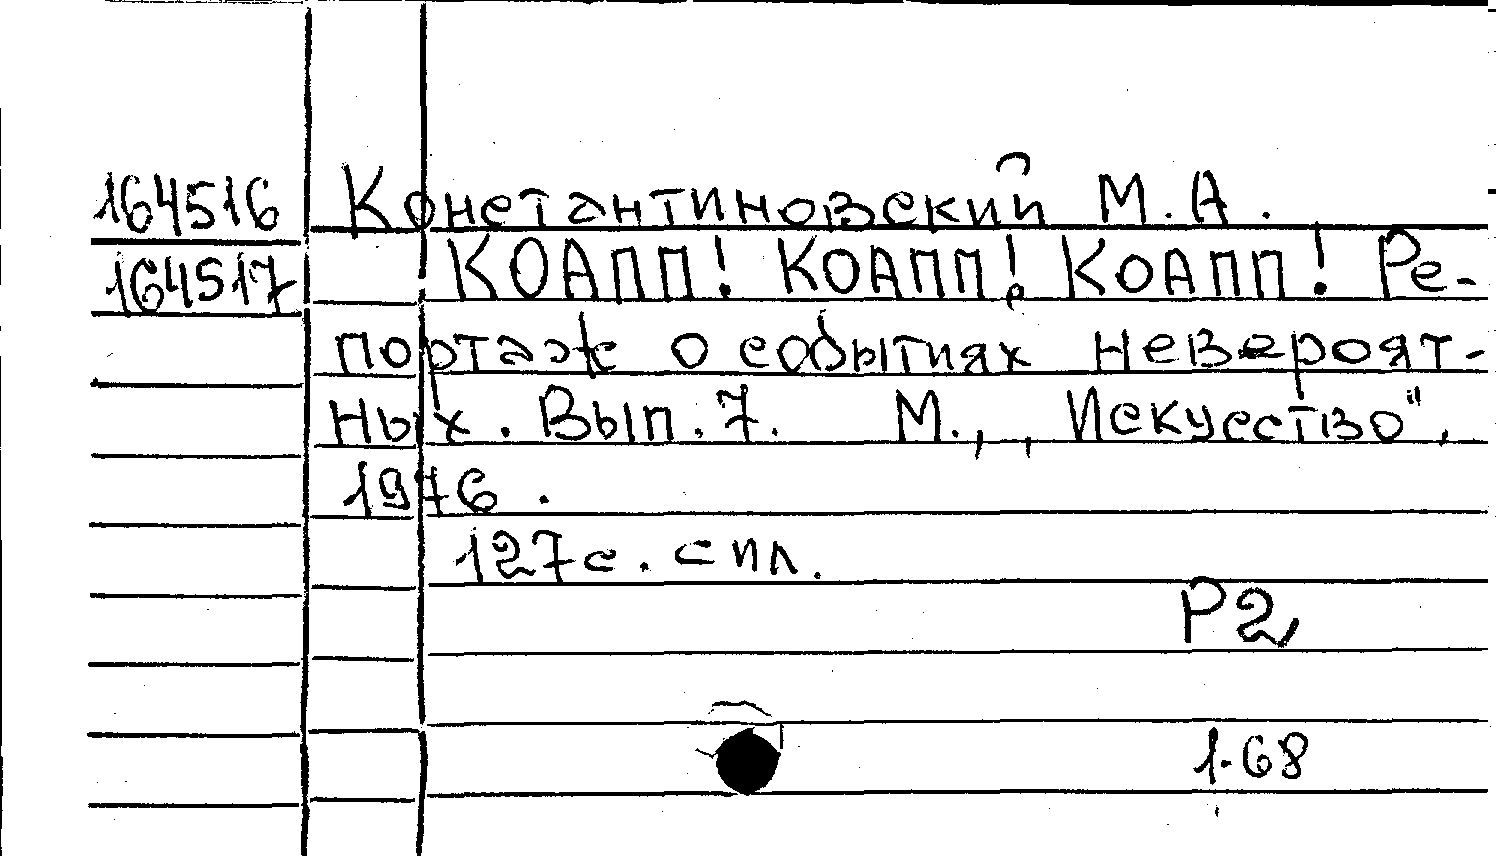 164516 Константиновский М.А.
164517 КОАПП! КОАПП! КОАПП! Ре-
портаж о событиях невероят-
ных. Вып.7. М., „Искусство",
1976.
127с. с ил.
Р2
1.68